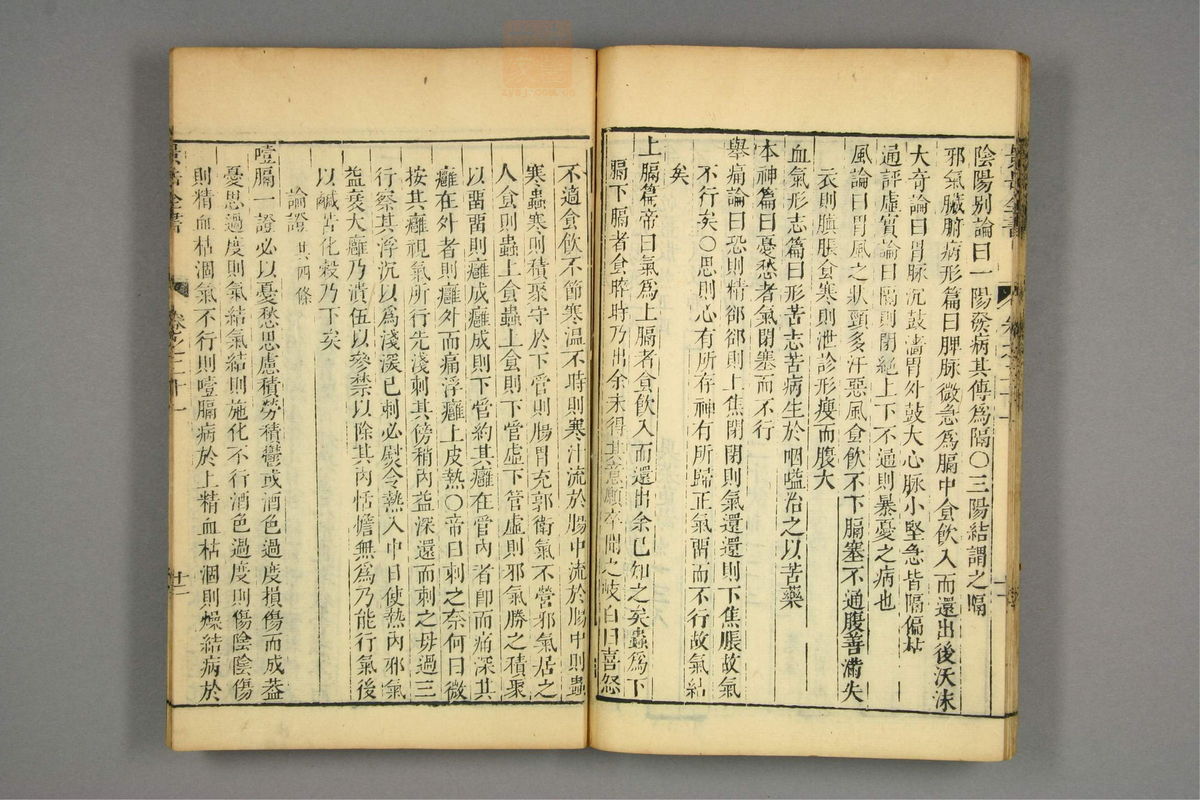 陰陽別論曰一陽發病其傳為隔○三陽結謂之隔
邪氣臟腑病形篇曰脾脉微急為膈中食飲入而還出後沃沫
大奇論曰胃脉沉鼓濇胃外鼓大心脉小堅急皆隔偏枯
通評虛實論曰隔則閉絕上下不通則暴憂之病也
風論曰胃風之狀頸多汗惡風食飲不下膈塞不通腹善滿失
衣則䐜脹食寒則泄診形瘦而腹大
血氣形志篇曰形苦志苦病生於咽嗌治之以苦藥
本神篇曰憂愁者氣閉塞而不行
舉痛論曰恐則精郤郤則上焦閉閉則氣還還則下焦脹故氣
不行矣○思則心有所存神有所歸正氣畱而不行故氣結
矣
上膈篇帝曰氣為上膈者食飲入而還出余已知之矣蟲為下
膈下膈者食晬時乃出余未得其意願卒聞之岐伯曰喜怒
不適食飲不節寒溫不時則寒汁流於腸中流於腸中則蟲
寒蟲寒則積聚守於下管則腸胃充郭衛氣不營邪氣居之
人食則蟲上食蟲上食則下管虛下管虛則邪氣勝之積聚
以畱畱則癰成癰成則下管約其癰在管內者卽而痛深其
癰在外者則癰外而痛浮癰上皮熱○帝曰刺之奈何曰微
按其癰視氣所行先淺刺其傍稍內益深還而刺之毋過三
行察其浮沉以為淺深已刺必熨令熱入中日使熱內邪氣
益衰大癰乃潰伍以參禁以除其內恬憺無為乃能行氣後
以鹹苦化穀乃下矣
論證 共四條
噎膈一證必以憂愁思慮積勞積鬱或酒色過度損傷而成葢
憂思過度則氣結氣結則施化不行酒色過度則傷陰陰傷
則精血枯涸氣不行則噎膈病於上精血枯涸則燥結病於